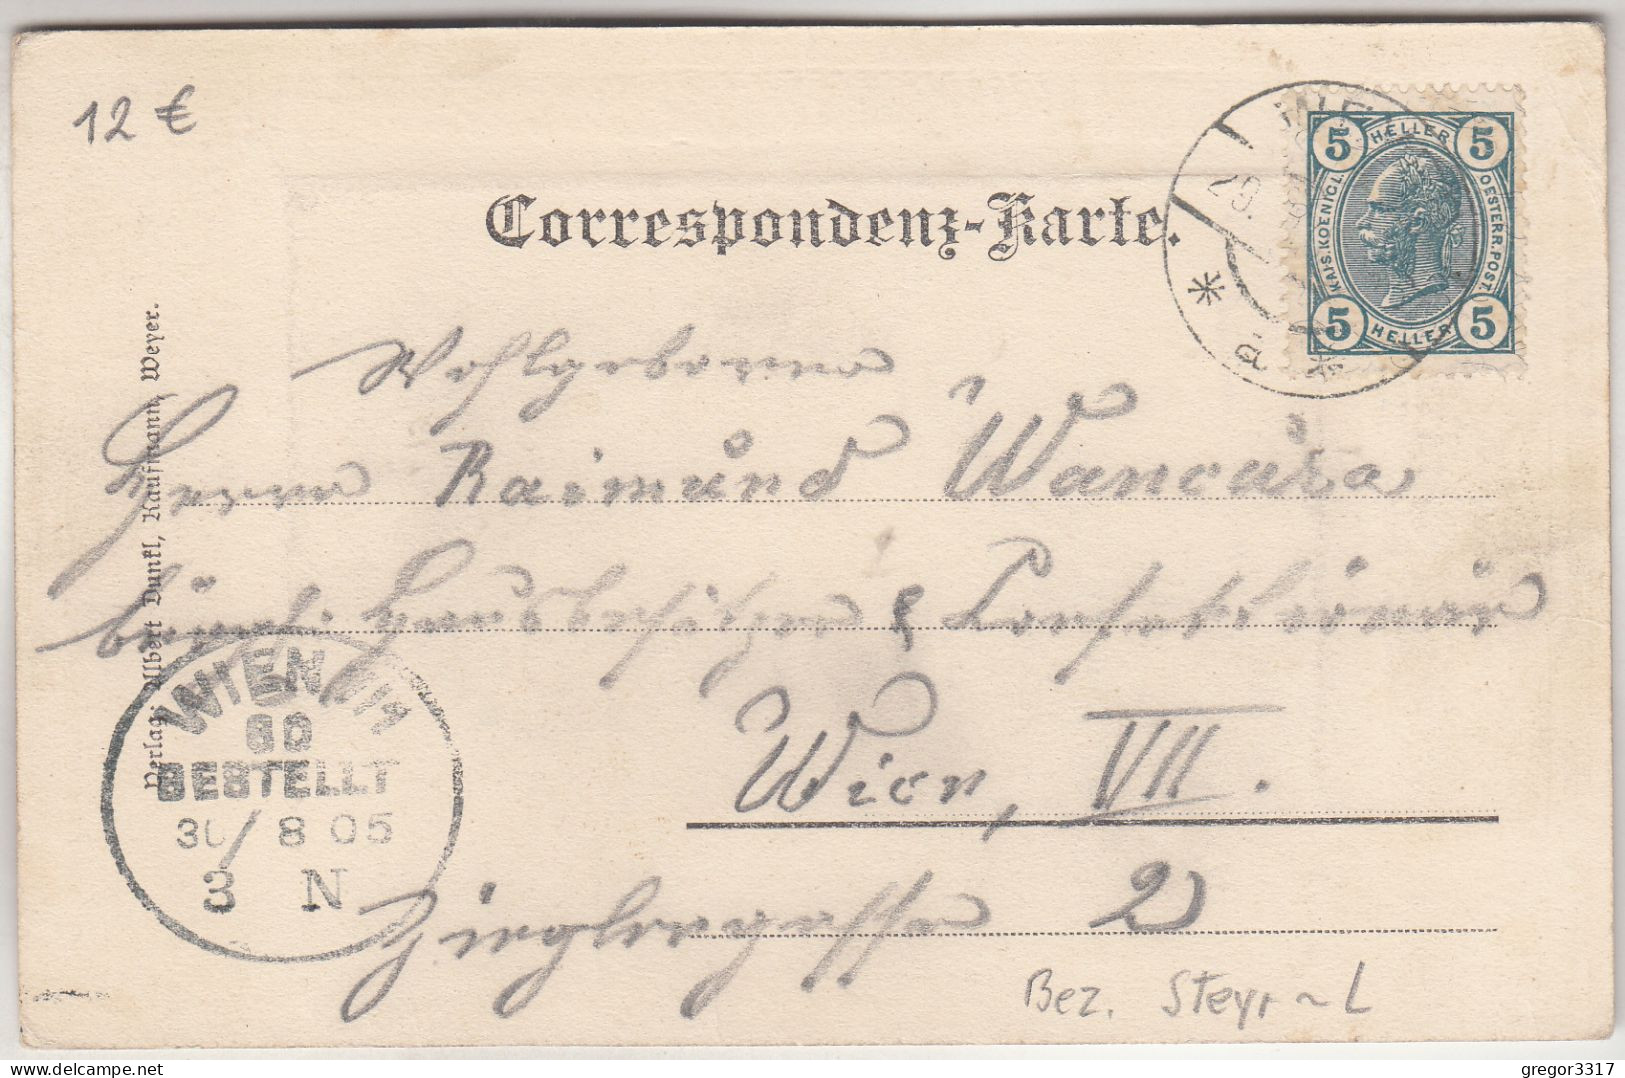 12 €
Correspondenz-Karte.
5 HELLER 5
KAIS. KOENIGL.
OESTERR. POST.
5 HELLER 5
29.
Wohlgeboren
Herrn Raimund Wancura
bürgl. Hausbesitzer & Confektionär
Wien, VII.
Zieglergasse 2
Verlag: Albert Dunkl, Kaufmann, Weyer.
WIEN
BESTELLT
8 05
3 N
Bez. Steyr-L
gregor3317